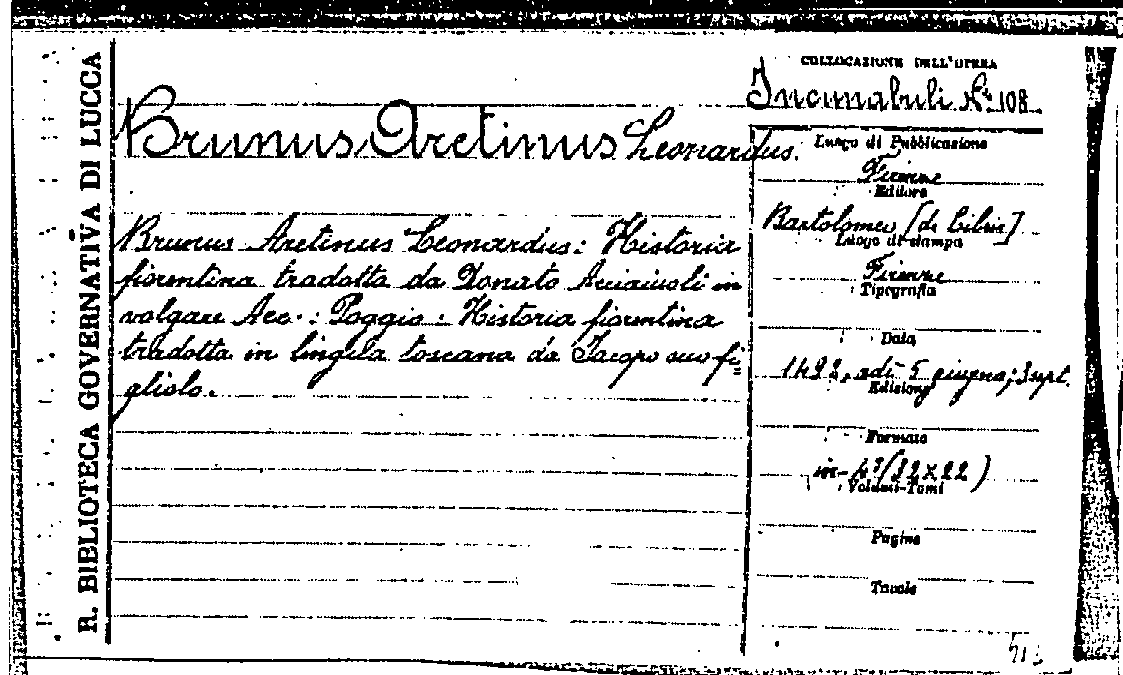 R. BIBLIOTECA GOVERNATIVA DI LUCCA
COLLOCAZIONE DELL'OPERA
Incunabuli N° 108
Brunus Aretinus Leonardus.
Brunus Aretinus Leonardus: Historia
fiorentina tradotta da Donato Acciaiuoli in
volgare Acc.: Poggio: Historia fiorentina
tradotta in lingua toscana da Iacopo suo fi-
gliolo.
Luogo di Pubblicazione
Firenze
Editore
Bartolomeo [di Libri]
Luogo di stampa
Firenze
Tipografia
Data
1492, adi 5 giugno; 3 sept.
Edizione
Formato
in-4°(32x22)
Volumi-Tomi
Pagine
Tavole